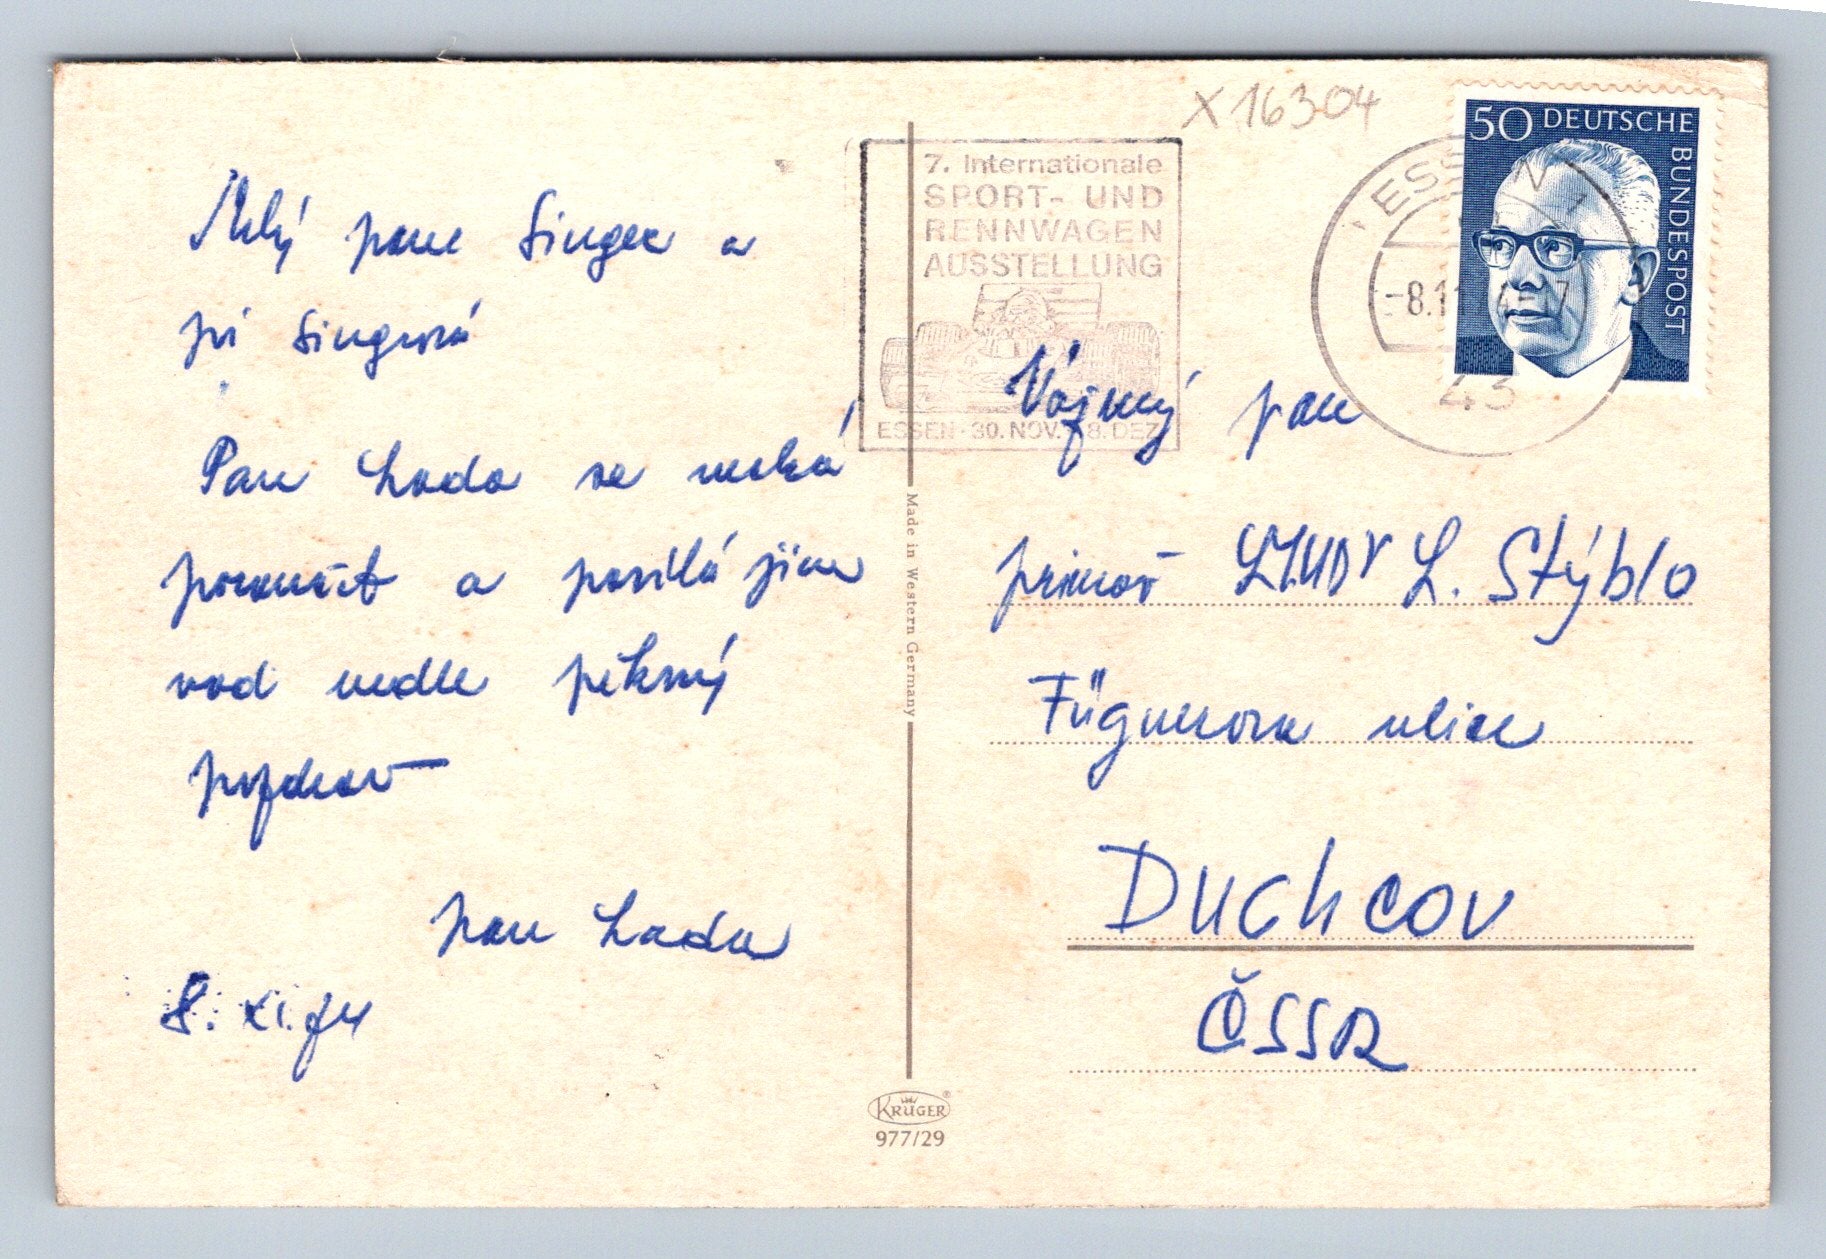 Milý pane Singer a
pí Singrová
Pan Lada se nechá
poroučet a posílá jim
vod vedle pěkný
pozdrav
pan Lada
8. XI. 74
X 16304
7. Internationale
SPORT- UND
RENNWAGEN
AUSSTELLUNG
ESSEN · 30. NOV. - 8. DEZ.
50 DEUTSCHE
BUNDESPOST
ESSEN 1
-8.11
43
Vážený pan
primář MUDr L. Stýblo
Fügnerova ulice
DUCHCOV
ČSSR
Made in Western Germany
KRÜGER®
977/29